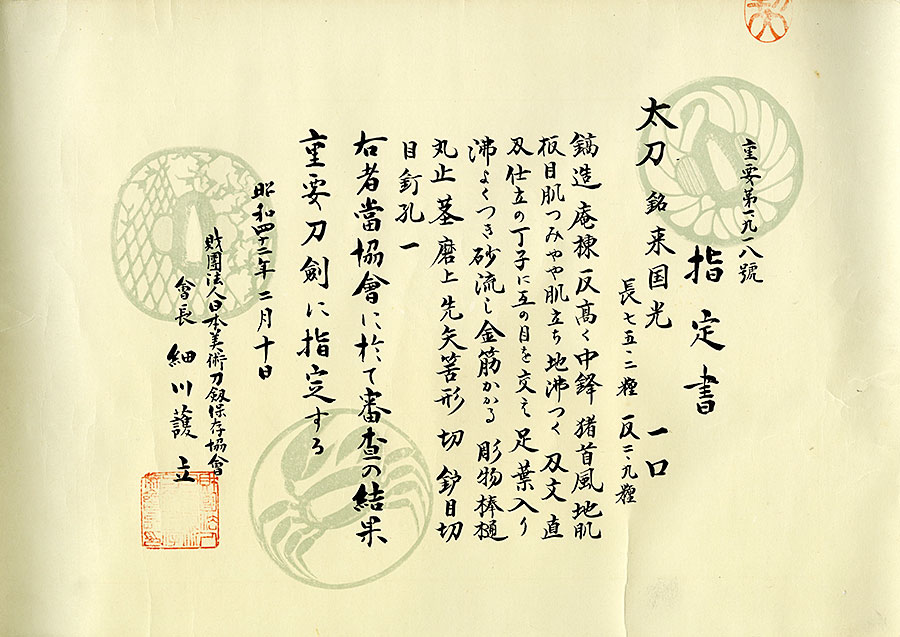 重要第一九一八號
指定書
太刀 銘 来国光 一口
長七五・二糎 反二・九糎
鎬造 庵棟 反高く 中鋒 猪首風 地肌
板目肌つみやや肌立ち 地沸つく 刃文 直
刃仕立の丁子に互の目を交え 足葉入り
沸よくつき 砂流し 金筋かかる 彫物 棒樋
丸止 茎 磨上 先矢筈形 切 鈩目切
目釘孔一
右者當協會に於て審査の結果
重要刀劍に指定する
昭和四十二年 二月十日
財團法人日本美術刀剣保存協會
會長 細川護立